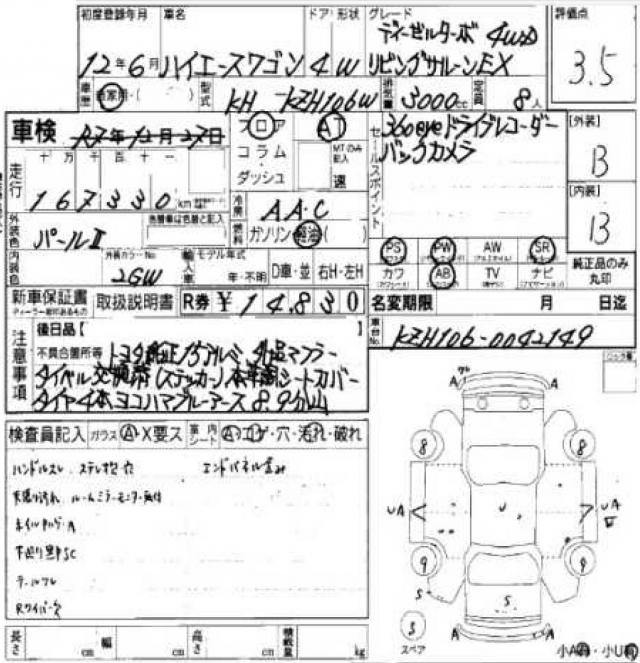 初度登録年月 車名 ドア 形状 グレード 評価点
12年6月 ハイエースワゴン 4 W ディーゼルターボ 4WD
リビングサルーンEX
3.5
車歴 自家用・( ) 型式 KH - KZH106W 排気量 3000cc 定員 8人
車検 R7年12月27日
フロア AT
コラム・ MTのみ記入
ダッシュ 速
セールスポイント 360eyeドライブレコーダー
バックカメラ
[外装]
B
[内装]
B
走行 十 万 千 百 十 一
167330km
冷房 AAC
燃料 ガソリン・軽油( )
外装色 パールⅡ 色替車は色替と記入
内装色 外装カラーNo 2GW
輸入車 モデル年式 年・不明 D車・並 右H・左H
PS PW AW SR
カワ AB TV ナビ
純正品のみ丸印
新車保証書 取扱説明書 R券 ¥14,830
ディーラー捺印あるもの
名変期限 月 日迄
車台No. KZH106-0042149
注意事項 後日品【
不具合箇所等 トヨタ純正15アルミ 外品マフラー
タイベル交換済(ステッカー) シートカバー
タイヤ4本ヨコハマブルーアース 8,9分山
検査員記入 ガラス A・X要ス 室内シート A・コゲ・穴・汚れ・破れ
ハンドルスレ
ルームミラーモニター
ホイルキズ・A
下廻り黒サSC
長さ cm 幅 cm 高さ cm 積載量 kg
A A
8 8
UA U UA
9 9
S S
S
スペア
A A
小A・小U